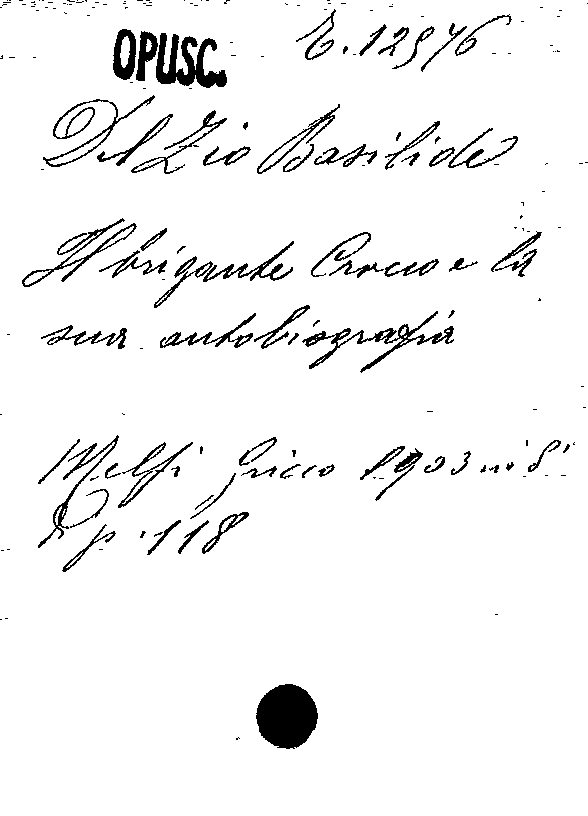 OPUSC. E. 12976
Del Zio Basilide
Il brigante Crocco e la
sua autobiografia
Melfi, Gricco 1903 in 8°
pp. 118